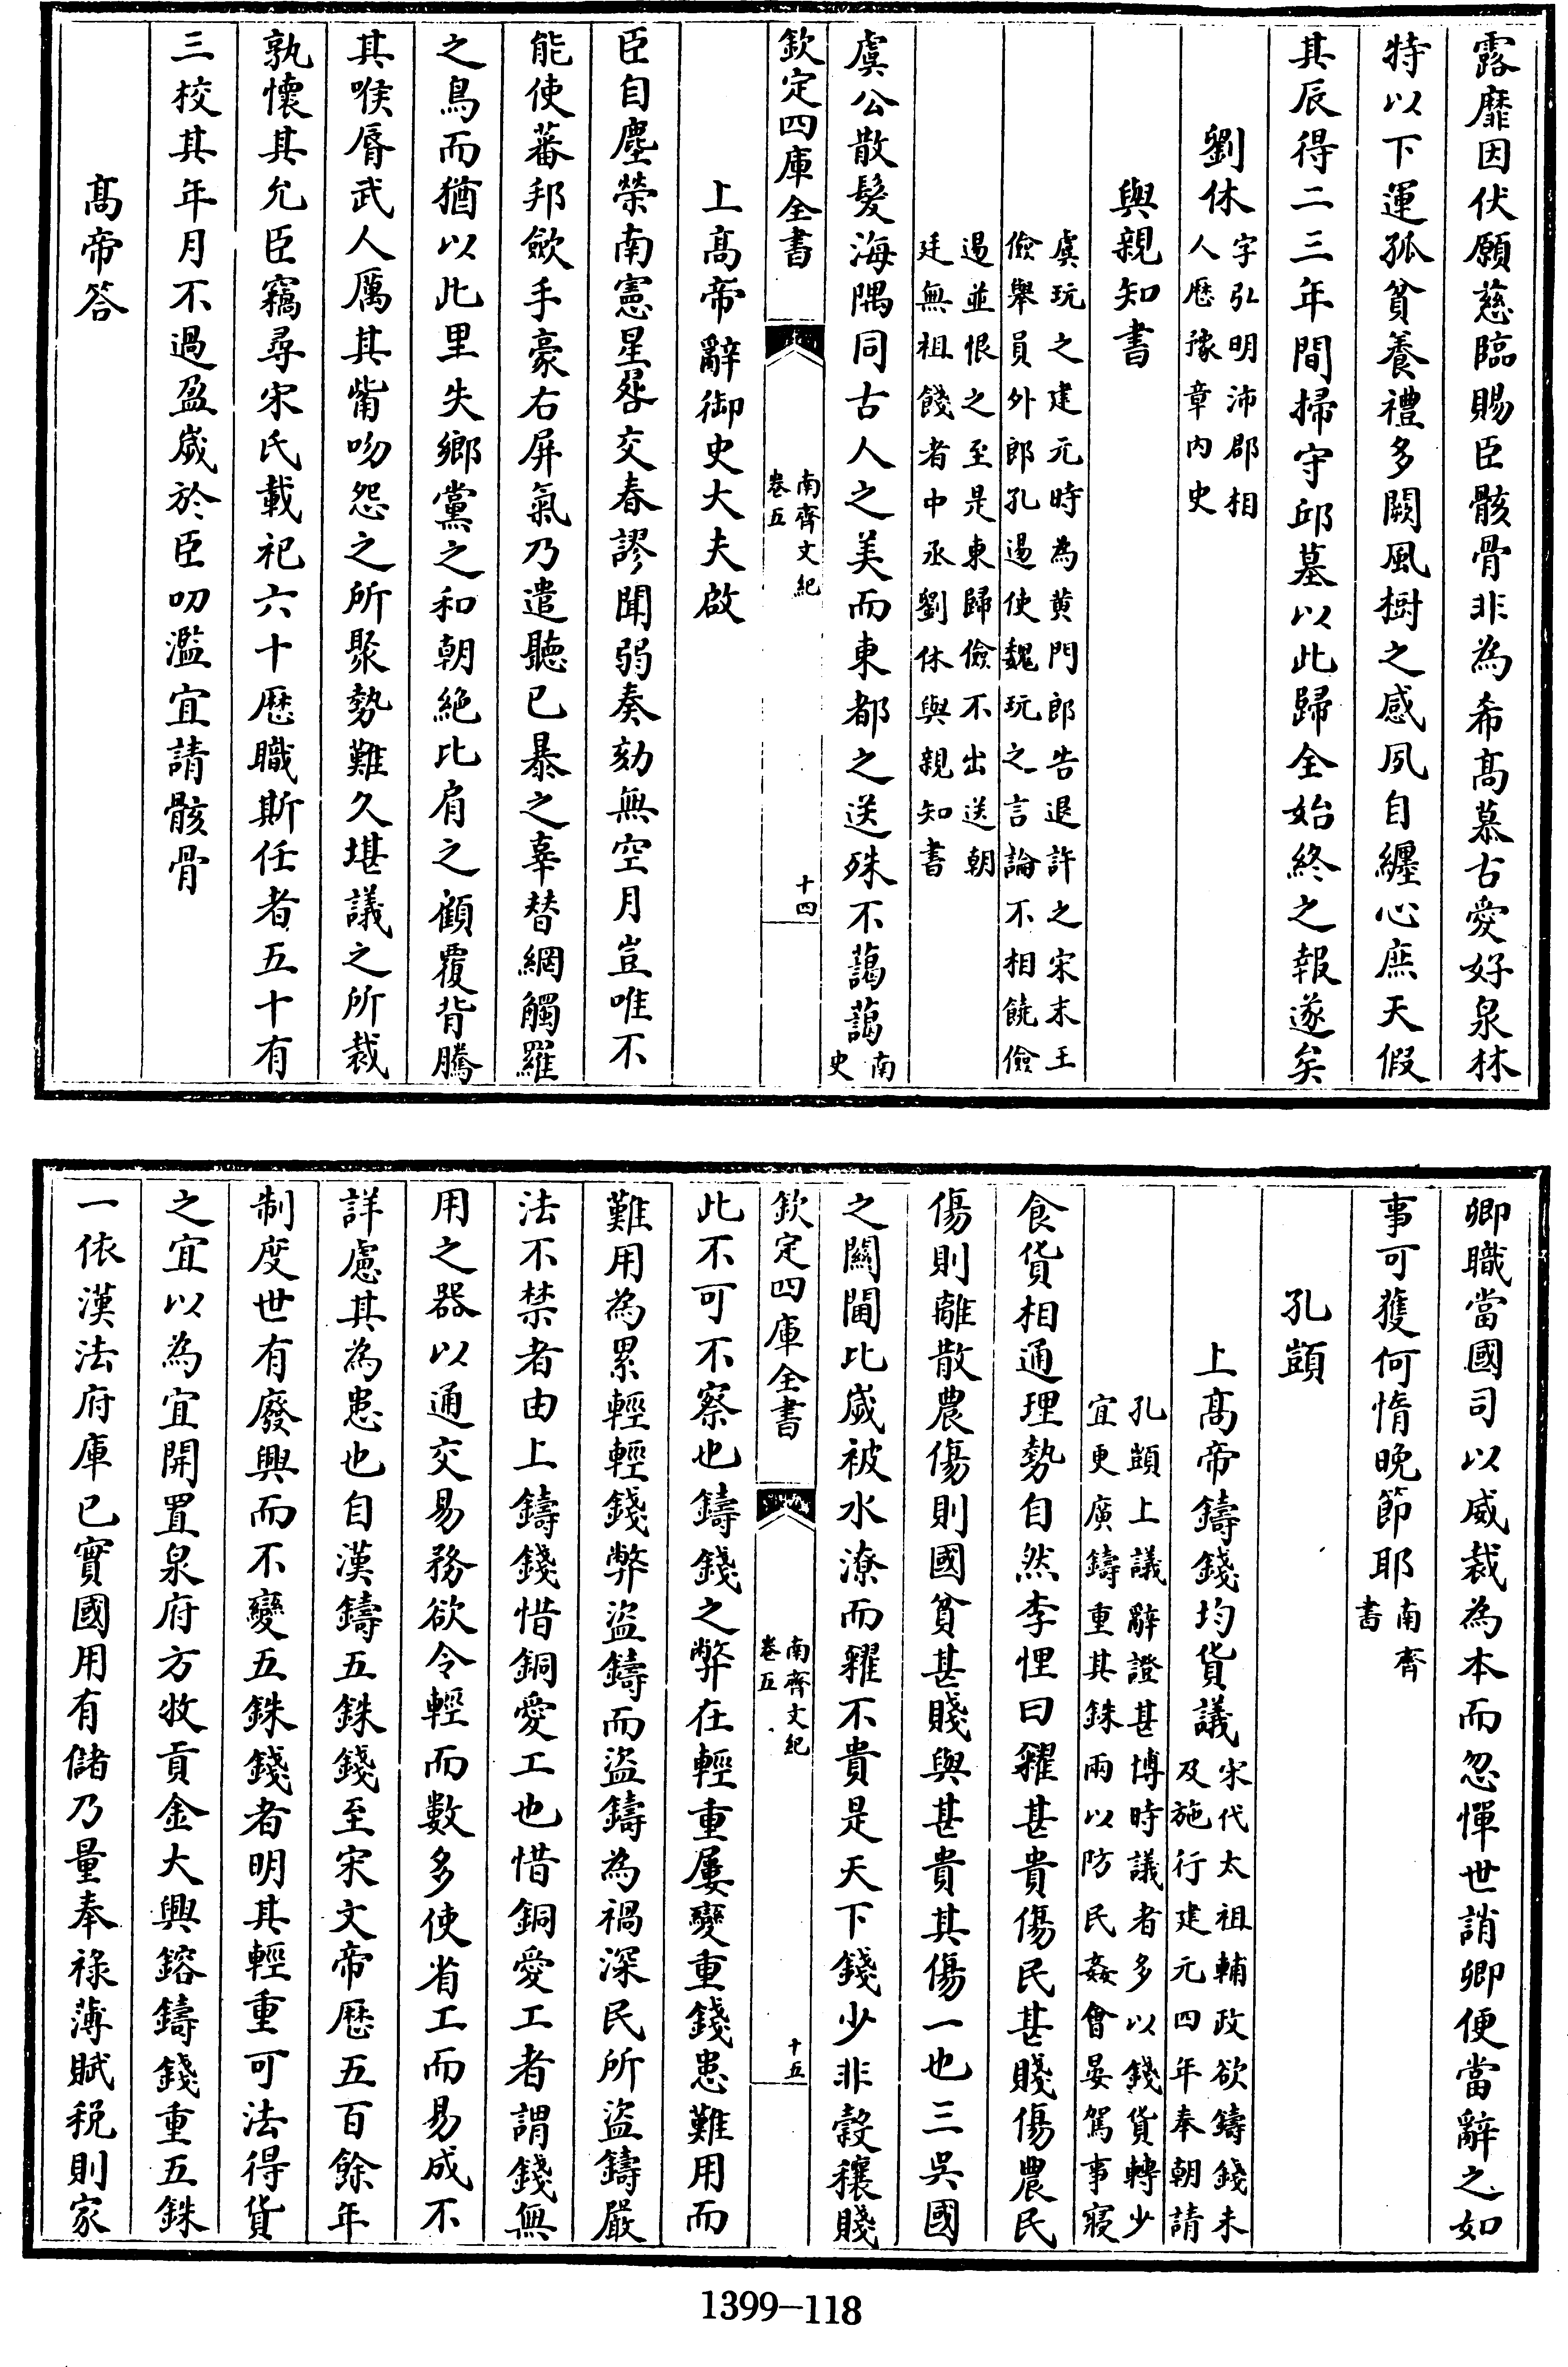 露靡因伏願慈臨賜臣骸骨非為希髙慕古愛好泉林
特以下運孤貧養禮多闕風樹之感夙自纒心庶天假
其辰得二三年間掃守邱墓以此歸全始終之報遂矣
劉休字弘明沛郡相人歴豫章内史
與親知書
虞玩之建元時為黄門郎告退許之宋末王
儉舉員外郎孔逷使魏玩之言論不相饒儉
逷並恨之至是東歸儉不出送朝
廷無祖餞者中丞劉休與親知書
虞公散髮海隅同古人之美而東都之送殊不藹藹南史
欽定四庫全書
南齊文紀
卷五
十四
上髙帝辭御史大夫啟
臣自塵榮南憲星晷交春謬聞弱奏劾無空月豈唯不
能使蕃邦歛手豪右屏氣乃遣聽已暴之辜替網觸羅
之鳥而猶以此里失鄉黨之和朝絶比肩之顧覆背騰
其喉脣武人厲其觜吻怨之所聚勢難久堪議之所裁
孰懷其允臣竊尋宋氏載祀六十歴職斯任者五十有
三校其年月不過盈歲於臣叨濫宜請骸骨
髙帝答
卿職當國司以威裁為本而忽憚世誚卿便當辭之如
事可獲何惰晚節耶南齊書
孔顗
上髙帝鑄錢均貨議宋代太祖輔政欲鑄錢未
及施行建元四年奉朝請
孔顗上議辭證甚博時議者多以錢貨轉少
宜更廣鑄重其銖兩以防民姦會晏駕事寢
食貨相通理勢自然李悝曰糴甚貴傷民甚賤傷農民
傷則離散農傷則國貧甚賤與甚貴其傷一也三吳國
之闗閫比歲被水潦而糴不貴是天下錢少非穀穰賤
欽定四庫全書
南齊文紀
卷五
十五
此不可不察也鑄錢之弊在輕重屢變重錢患難用而
難用為累輕輕錢弊盜鑄而盜鑄為禍深民所盜鑄嚴
法不禁者由上鑄錢惜銅愛工也惜銅愛工者謂錢無
用之器以通交易務欲令輕而數多使省工而易成不
詳慮其為患也自漢鑄五銖錢至宋文帝歴五百餘年
制度世有廢興而不變五銖錢者明其輕重可法得貨
之宜以為宜開置泉府方牧貢金大興鎔鑄錢重五銖
一依漢法府庫已實國用有儲乃量奉祿薄賦稅則家
1399-118